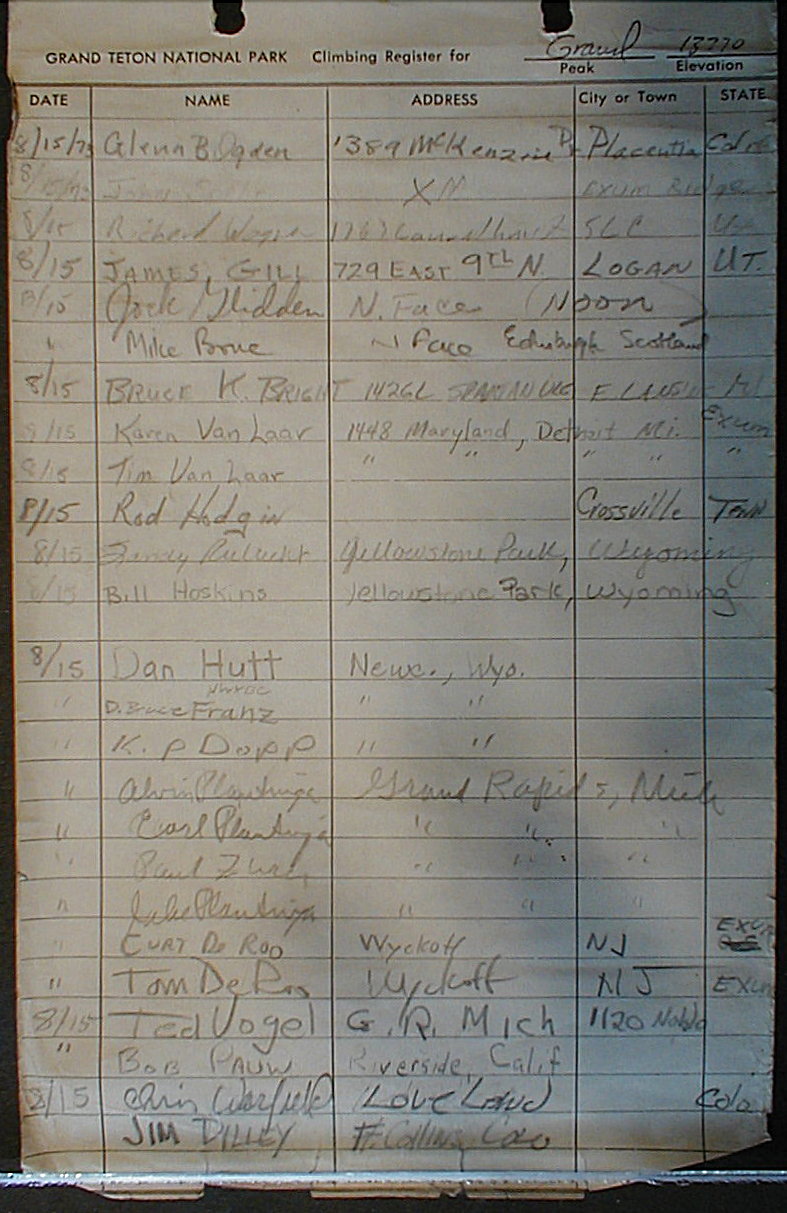 GRAND TETON NATIONAL PARK Climbing Register for Grand 13770
Peak Elevation
DATE NAME ADDRESS City or Town STATE
8/15/73 Glenn B. Ogden 1389 McKenzie Dr Placentia
8/15/73 John XN Exum Ridge
8/15 Richard SLC
8/15 JAMES, GILL 729 EAST 9th N. LOGAN UT.
8/15 Jock Glidden N. Face (Noon)
" Mike N Face Edinburgh Scotland
8/15 BRUCE K. BRIGHT 1426L SPARTAN E LANSING MI
8/15 Karen Van Laar 1448 Maryland, Detroit Mi. Exum
8/15 Tim Van Laar " " " " "
8/15 Rod Hodgin Crossville Tenn
8/15 Yellowstone Park, Wyoming
8/15 Bill Hoskins Yellowstone Park, Wyoming
8/15 Dan Hutt Newc., Wyo.
" D. Bruce Franz " "
" K. P Dopp " "
" Alvin Plantinga Grand Rapids, Mich
" Carl Plantinga " " "
" Paul " " "
" Plantinga " " "
" CURT De Roo Wyckoff NJ EXUM
" Tom De Roo Wyckoff NJ EXUM
8/15 Ted Vogel G.R. Mich 1120
" BOB PAUW Riverside, Calif
8/15 Chris Warfield LOVELAND Colo
JIM DILLEY Ft. Collins Colo